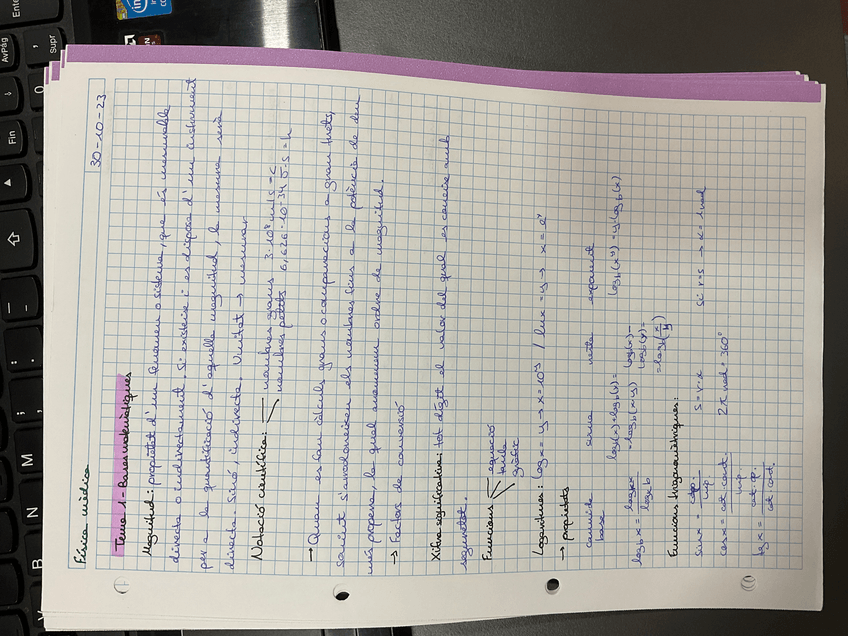 Física mèdica
30-10-23
Tema 1 - Bases matemàtiques
Magnitud: propietat d'un fenomen o sistema, que és mesurable
directa o indirectament. Si existeix i es disposa d'un instrument
per a la quantificació d'aquella magnitud, la mesura serà
directa. Sinó, indirecta. Unitat → mesurar
Notació científica: nombres grans 3·10⁸ m/s = c
nombres petits 6,626·10-34 J·s = h
→ Quan es fan càlculs grans o comparacions a grans trets,
sovint s'arrodoneixen els nombres fins a la potència de deu
més propera, la qual anomenem ordre de magnitud.
→ Factors de conversió
Xifra significativa: tot dígit el valor del qual es coneix amb
seguretat.
Funcions equació
taula
gràfic
Logaritmes: log x = y → x = 10^y / ln x = y → x = e^y
→ propietats
canvi de base suma resta exponent
log_b x = log_a x / log_a b log_b(x) + log_b(y) = log_b(x·y) log_b(x) - log_b(y) = log_b(x/y) log_b(x^y) = y·log_b(x)
Funcions trigonomètriques:
sin x = cat. op. / hip. s = r·α si r=s → α = 1 rad
cos x = cat. cont. / hip. 2π rad = 360°
tg x = cat. op. / cat. cont.
AvPág
Fin
Supr
intel
M
N
B